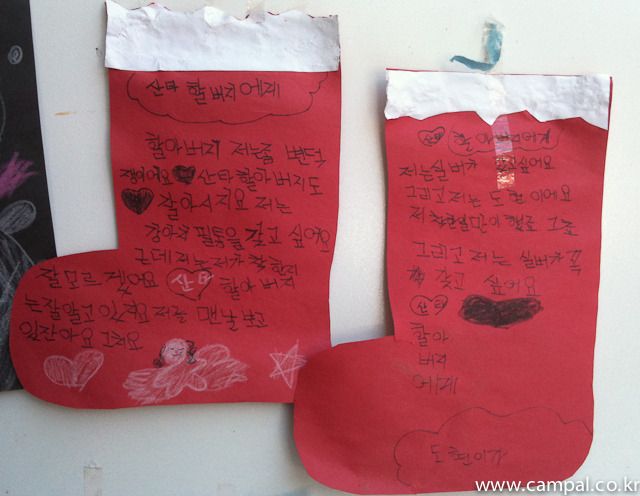 산타 할버지에게
할아버지 저는좀 변덕
쟁이에요 산타 할아버지도
잘아시지요 저는
강아지 필통을 갖고 싶어요
근데 저는 제가 착한지
잘모르겠어요 산타 할아버지
는잘알고있지요 저를 맨날 보고
있잖아요 그쵸
산타 할아버지에게
저는실버카 갖고싶어요
그리고 저는 도현 이에요
저 착한일많이 했죠 그쵸
그리고 저는 실버카 꼭
갖고 싶어요
산타
할아
버지
에게
도현이가
www.campal.co.kr